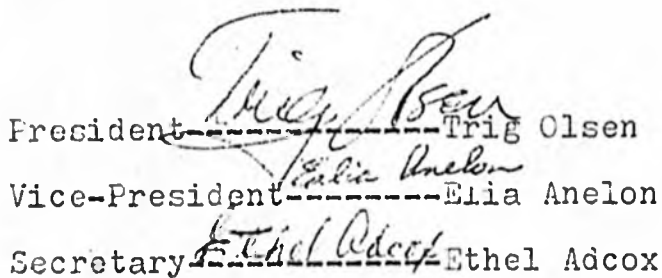 Trig Olsen
President----------------Trig Olsen
Elia Anelon
Vice-President---------Elia Anelon
Ethel Adcox
Secretary--------------Ethel Adcox